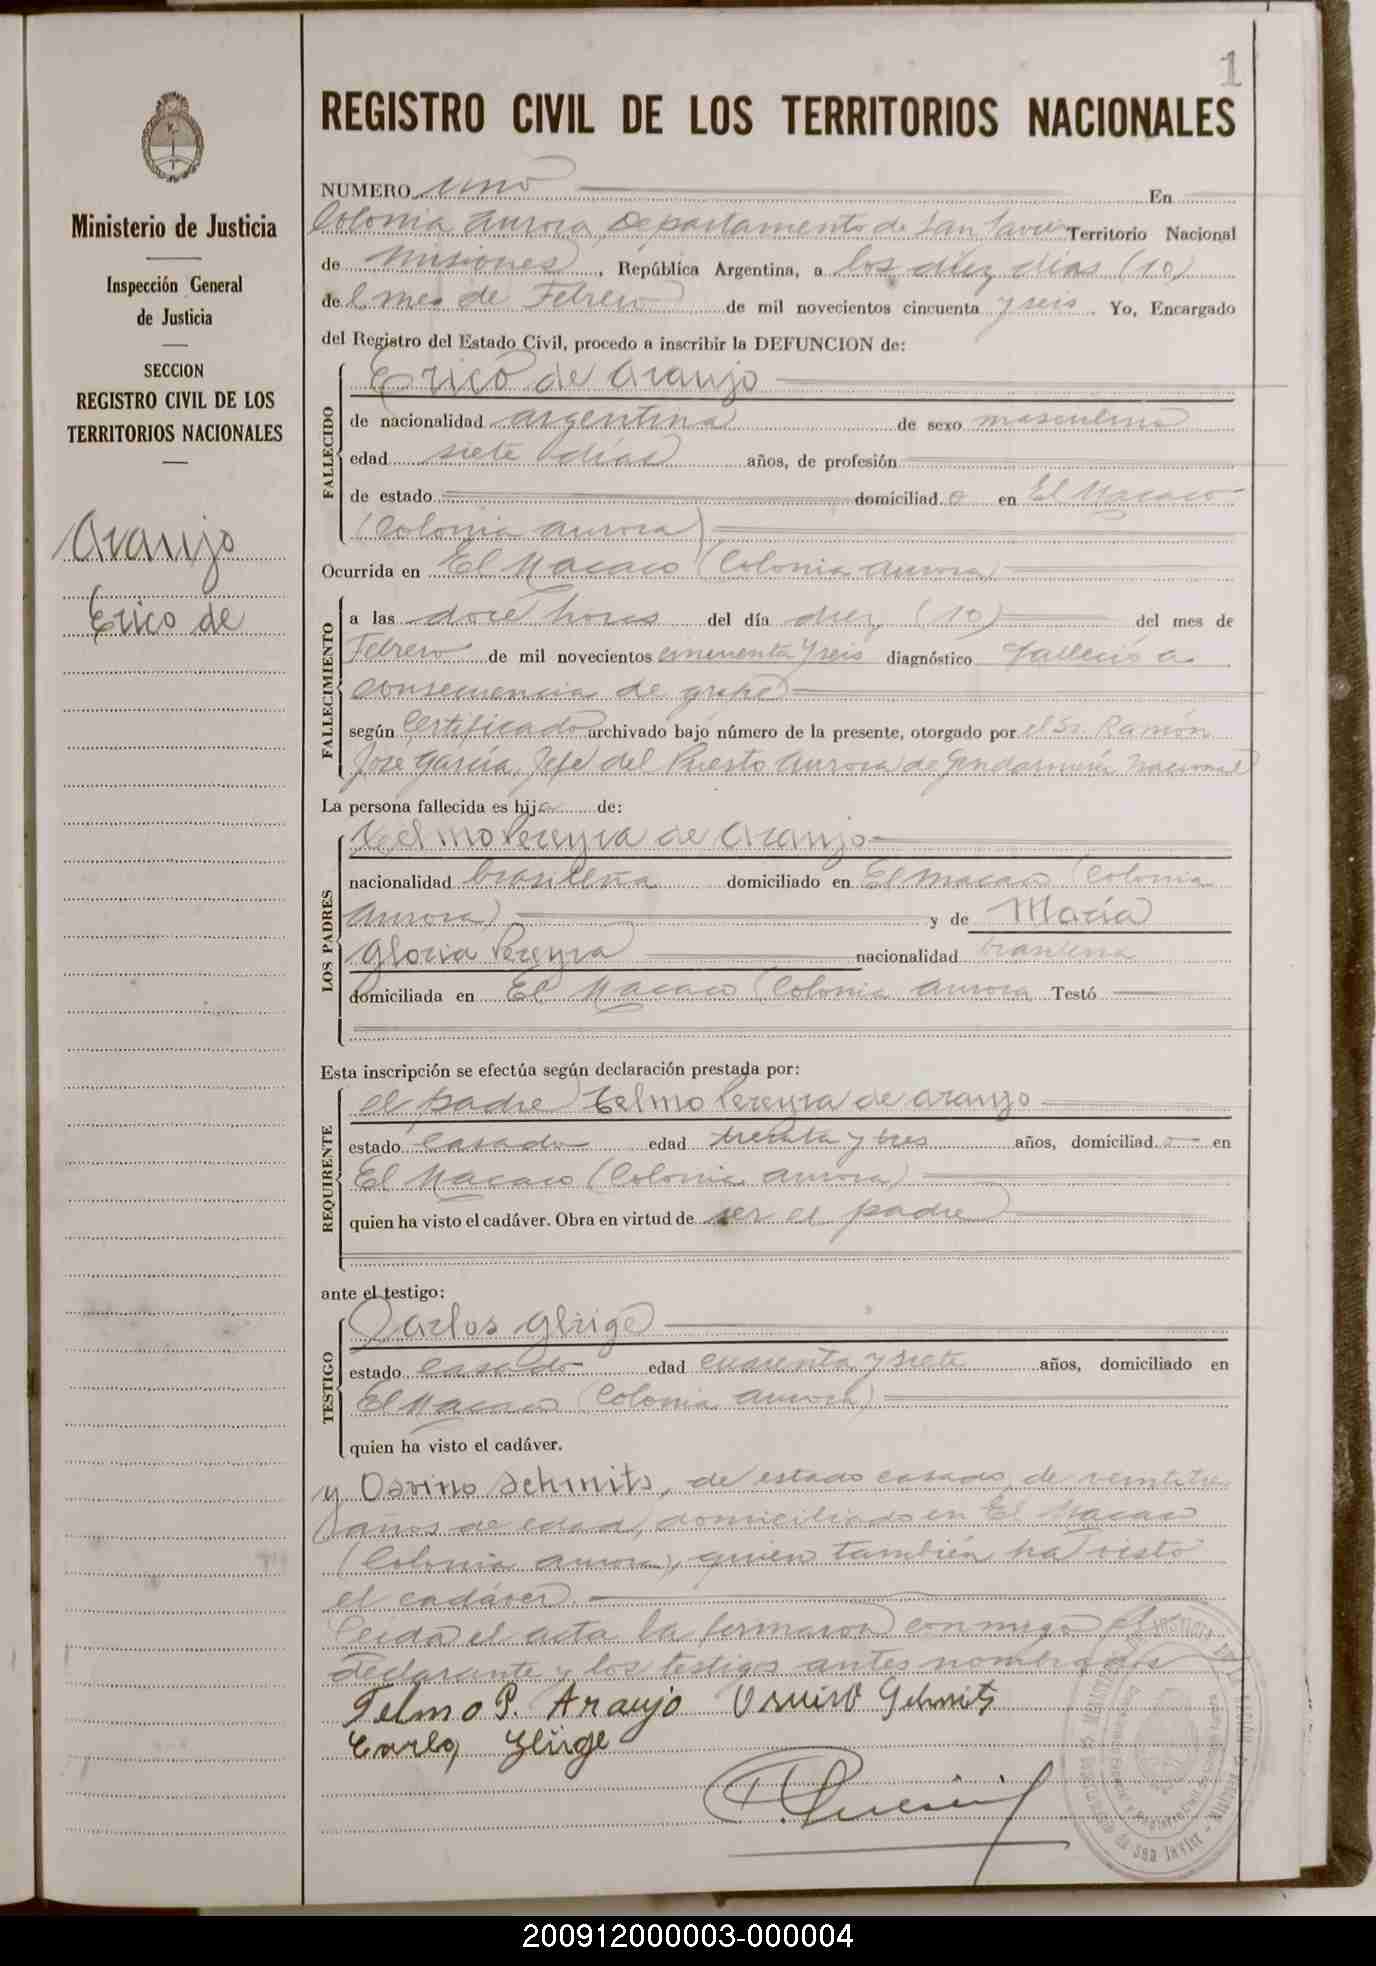 1
REGISTRO CIVIL DE LOS TERRITORIOS NACIONALES
Ministerio de Justicia
Inspección General
de Justicia
SECCION
REGISTRO CIVIL DE LOS
TERRITORIOS NACIONALES
Araujo
Erico de
NUMERO uno En
Colonia Aurora, Departamento de San Javier Territorio Nacional
de Misiones, República Argentina, a los diez días (10)
del mes de Febrero de mil novecientos cincuenta y seis. Yo, Encargado
del Registro del Estado Civil, procedo a inscribir la DEFUNCION de:
FALLECIDO
Erico de Araujo
de nacionalidad argentina de sexo masculino
edad siete días años, de profesión
de estado domiciliado en El Macaco
(Colonia Aurora)
Ocurrida en El Macaco (Colonia Aurora)
FALLECIMIENTO
a las doce horas del día diez (10) del mes de
Febrero de mil novecientos cincuenta y seis diagnóstico Falleció a
consecuencia de gripe
según Certificado archivado bajo número de la presente, otorgado por el Sr. Ramón
José García, Jefe del Puesto Aurora de Gendarmería Nacional
La persona fallecida es hijo de:
LOS PADRES
Telmo Pereyra de Araujo
nacionalidad brasileña domiciliado en El Macaco (Colonia
Aurora) y de María
Gloria Pereyra nacionalidad brasileña
domiciliada en El Macaco (Colonia Aurora Testó
Esta inscripción se efectúa según declaración prestada por:
REQUIRENTE
el padre Telmo Pereyra de Araujo
estado casado edad treinta y tres años, domiciliado en
El Macaco (Colonia Aurora)
quien ha visto el cadáver. Obra en virtud de ser el padre
ante el testigo:
TESTIGO
Carlos Glüge
estado casado edad cuarenta y siete años, domiciliado en
El Macaco (Colonia Aurora)
quien ha visto el cadáver.
y Osvino Schmits, de estado casado, de veintitres
años de edad, domiciliado en El Macaco
(Colonia Aurora), quien también ha visto
el cadáver.
Leída el acta la firmaron conmigo el
declarante y los testigos antes nombrados
Telmo P. Araujo Osvino Schmits
Carlos Glüge
200912000003-000004